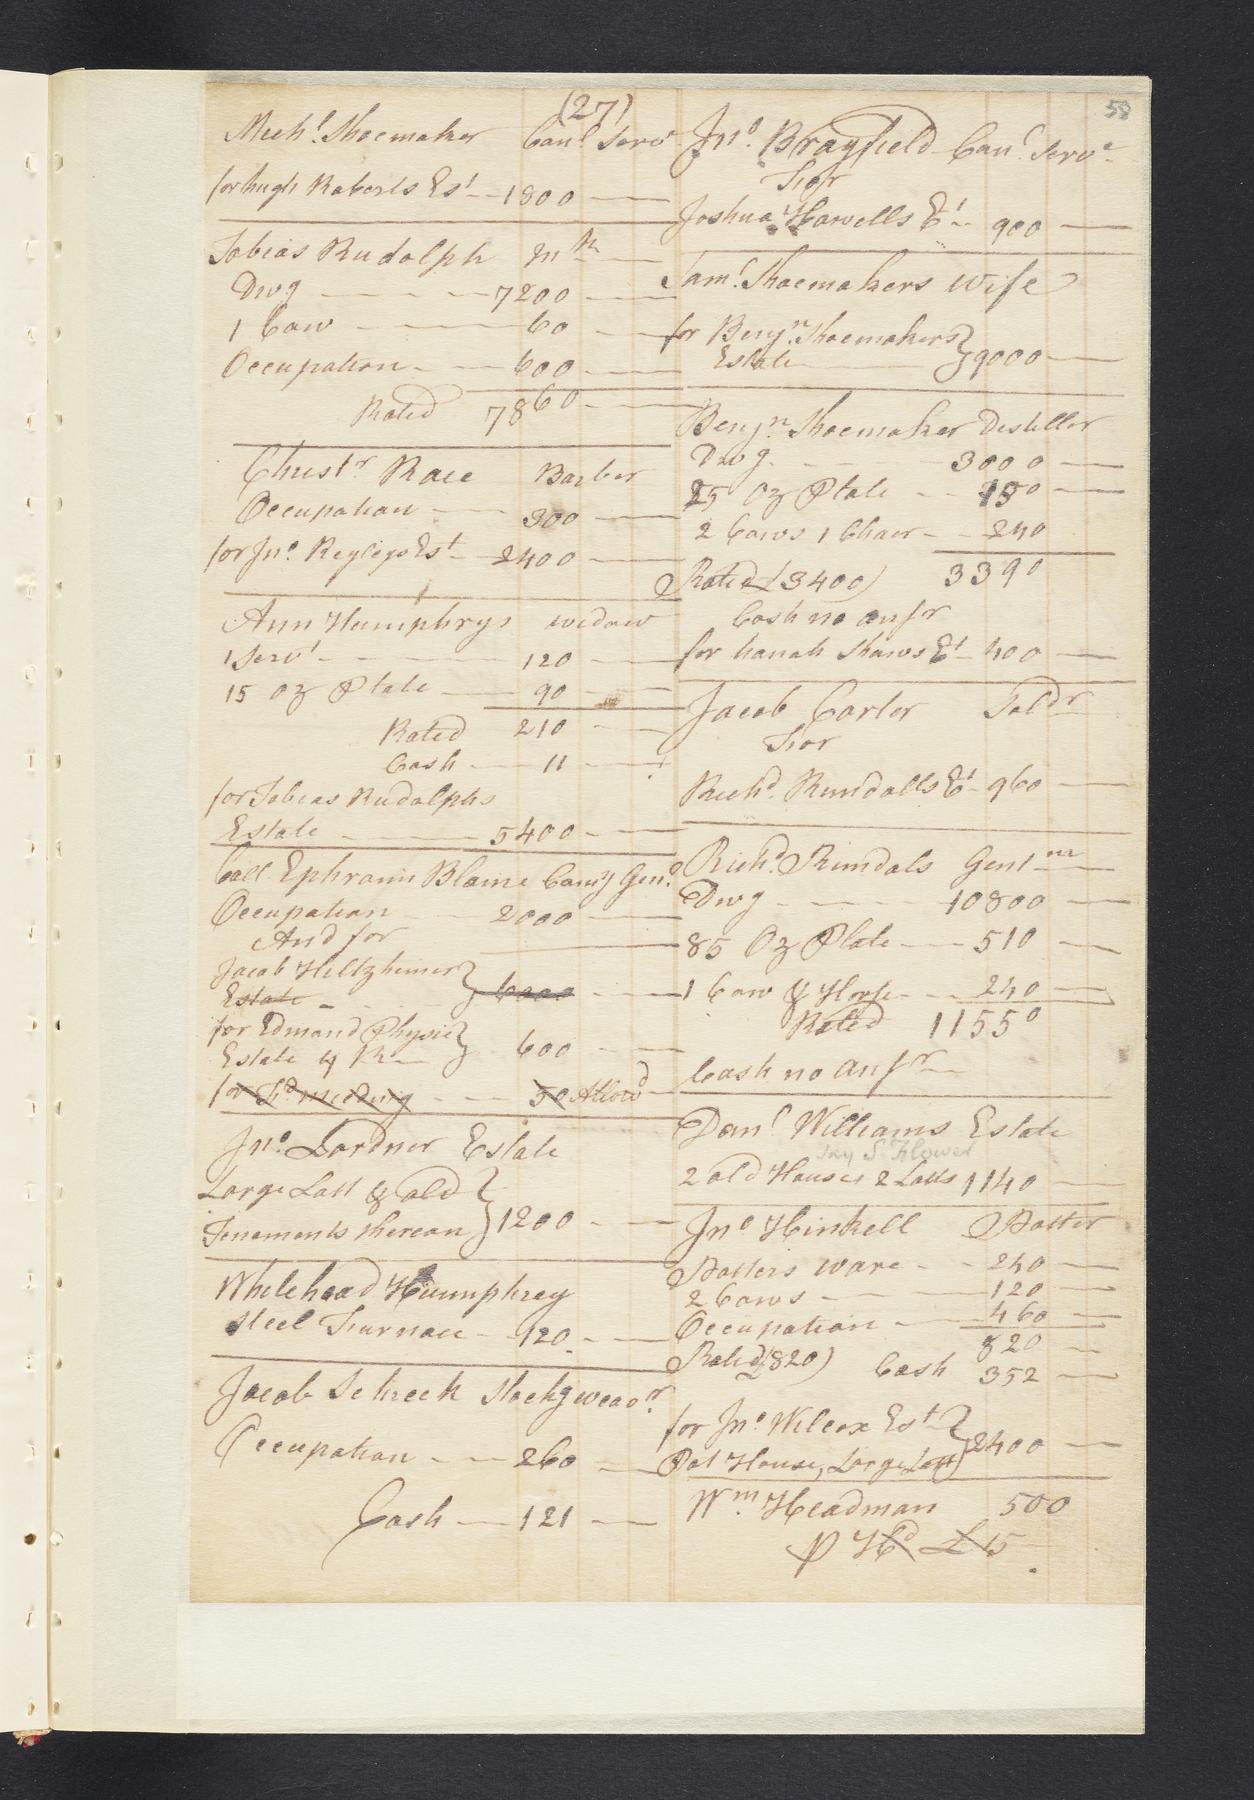 (27)
58
Mich.l Shoemaker Con.l Serv.
for hugh Roberts Est 1800
Tobias Rudolph
Dwg 7200
1 Cow 60
Occupation 600
Rated 7860
Christ.r Race Barber
Occupation 300
for Jn.o Reyleys Est 2400
Ann Humphrys widow
1 Serv.t 120
15 oz Plate 90
Rated 210
Cash 11
for Tobias Rudolphs
Estate 5400
Coll. Ephraim Blaine Comy Gen.l
Occupation 2000
And for
Jacob Hiltzheimer
Estate 6000
for Edmond Physic
Estate
50 Allow.d
600
Jn.o Lardner Estate
Large Lott & old
Tenements thereon 1200
Whitehead Humphrey
Steel Furnace 120
Jacob Schreek Stockgweav.r
Occupation 260
Cash 121
Jn.o Brayfield Con.l Serv.
For
Joshua Howells Et 900
Sam.l Shoemakers wife
for Benj.n Shoemakers
Estate 9000
Benj.n Shoemaker Distiller
Dwg 3000
25 Oz Plate 150
2 Cows 1 Chair 240
Rated (3400) 3390
Cash no ansr
for hanah Shaws Et 400
Jacob Carter Tald.r
For
Rich.d Rundalls Et 960
Rich.d Rundals Gent.m
Dwg 10800
85 Oz Plate 510
1 Cow & Horse 240
Rated 11550
Cash no ansr
Dan.l Williams Estate
Say S. Flower
2 old Houses 2 Lotts 1140
Jn.o Hinkell Potter
Potters ware 240
2 Cows 120
Occupation 460
820
Rated (820) Cash 352
for Jn.o Wilcox Est
Pot House, Large Lott 2400
W.m Headman 500
P H.d £15